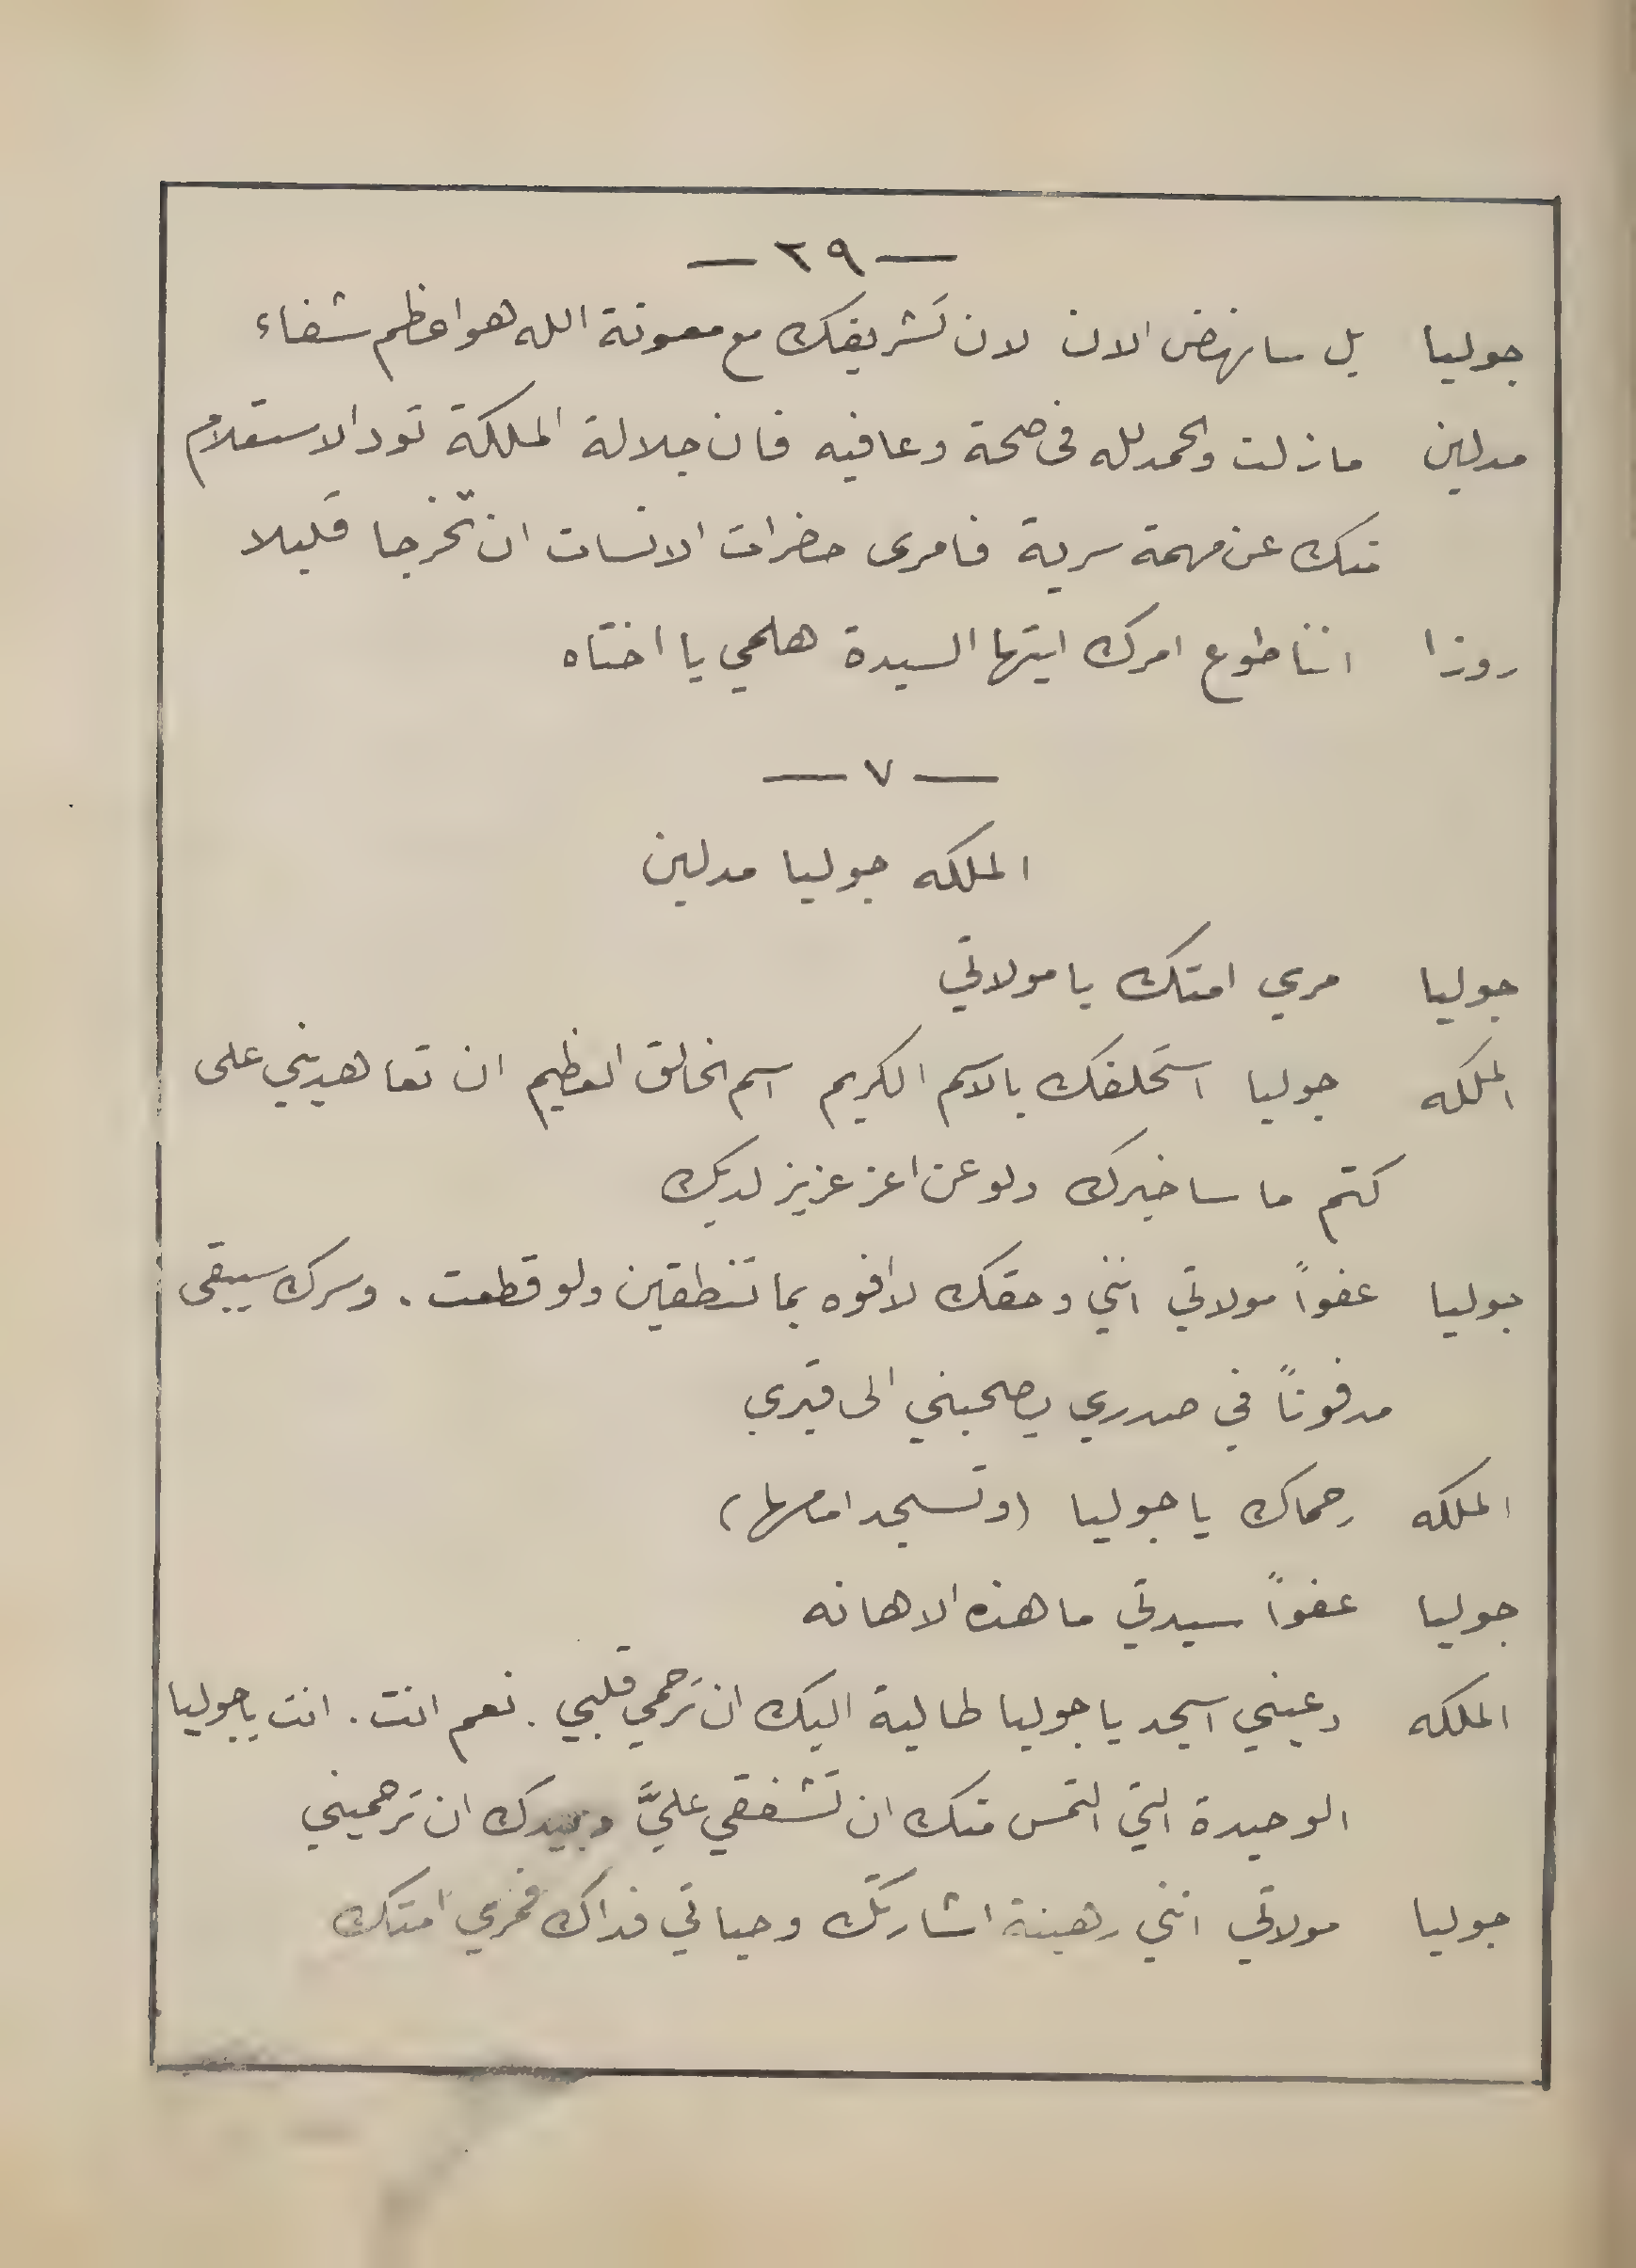 — ٢٩ —
جوليا بل سانهض الان لان تشريفك مع معونة الله هو اعظم شفاء
مدلين مازلت والحمدلله فى صحة وعافيه فان جلالة الملكة تود الاستعلام
منك عن مهمة سرية فامرى حضرات الانسات ان تخرجا قليلا
روزا اننا طوع امرك ايتها السيدة هلمي يا اختاه
— ٧ —
الملكه جوليا مدلين
جوليا مري امتك يا مولاتي
الملكه جوليا استحلفك بالاسم الكريم اسم الخالق العظيم ان تعاهديني على
كتم ما ساخبرك ولو عن اعز عزيز لديك
جوليا عفواً مولاتي انني وحقك لا افوه بما تنطقين ولو قطعت . وسرك سيبقى
مدفوناً في صدري يصحبني الى قبري
الملكه رحماك يا جوليا (وتسجد امامها)
جوليا عفواً سيدتي ما هذه الاهانه
الملكه دعيني اسجد يا جوليا طالبة اليك ان ترحمي قلبي . نعم انت . انت يا جوليا
الوحيدة التي التمس منك ان تشفقي عليَّ وبيدك ان ترحميني
جوليا مولاتي انني رهينة اشارتك وحياتي فداك فمري امتك